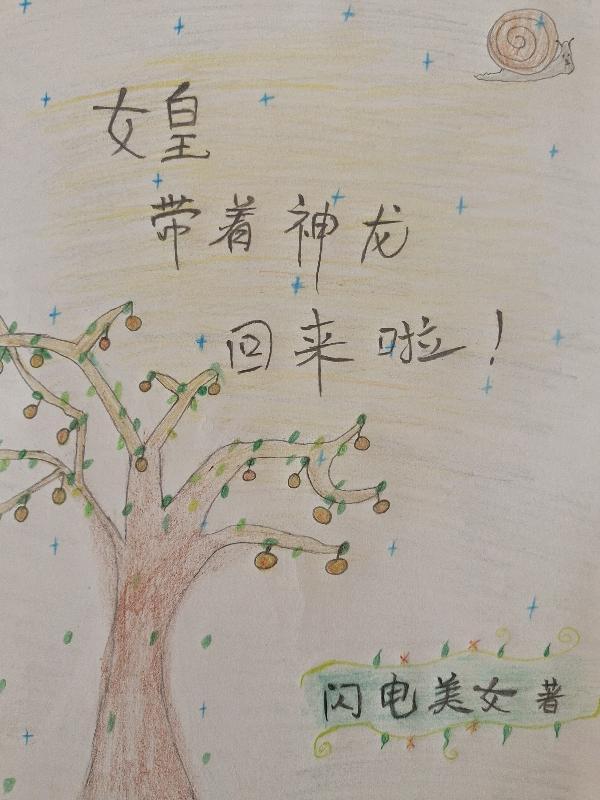 女皇
带着神龙
回来啦！
闪电美女 著